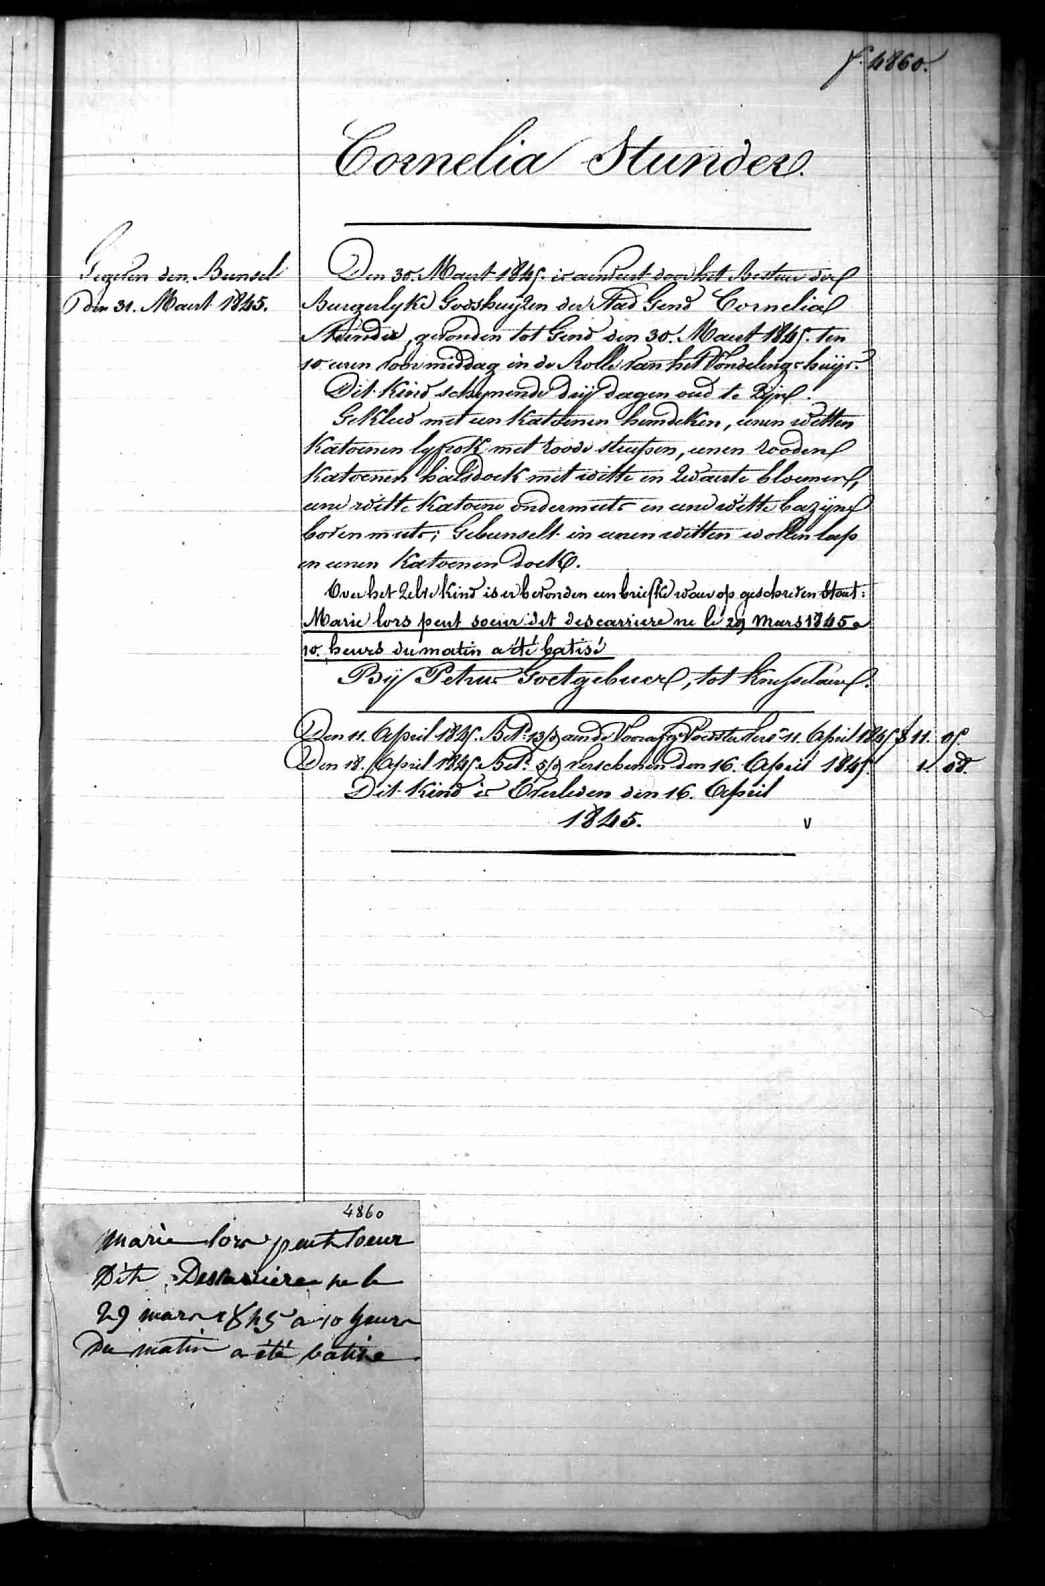 f. 4860.
Cornelia Stunder.
Gegeven den Bunsel
den 31. Maert 1845.
Den 30. Maert 1845. is aenveert door het Bestuer der
Burgerlyke Godshuyzen der Stad Gend Cornelia
Stunder, gevonden tot Gend den 30. Maert 1845. ten
10 uren voormiddag in de Rolle van het Vondelings-huys.
Dit kind schynende dry dagen oud te Zijn.
Gekleed met een Katoenen hemdeken, eenen witten
Katoenen lyfrok met roode streepen, eenen rooden
Katoenen halsdoek met witte en Zwarte bloemen,
eene witte Katoene ondermuts en eene witte bazijne
bovenmuts; Gebunselt in eenen witten wollen lap
en eenen Katoenen doek.
Over het Zelve kind is er bevonden een briefke waer op geschreven Staet:
Marie lors peut soeur dit descarriere ne le 29 mars 1845 a
10 heurs du matin a été batisé
Bij Petrus Goetgebuer, tot
Den 11. April 1845. Bet. 13/9 aen de Voorafg. Voedsterlers 11. April 1845 § 11. 05.
Den 18. April 1845. Bet. 5/9 verschenen den 16. April 1845. 1. 08.
Dit kind is Overleden den 16. April
1845. v
4860
marie lors peut soeur
Dit Descarriere ne le
29 mars 1845 a 10 heurs
Du matin a été batise